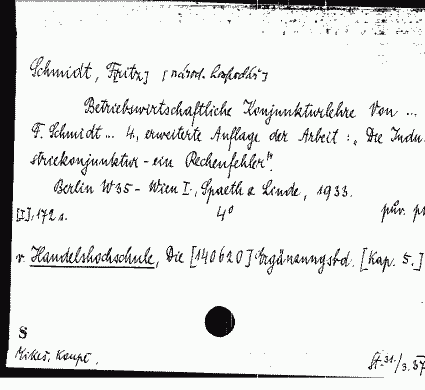 Schmidt, F[ritz] [národ. hospodář]
Betriebswirtschaftliche Konjunkturlehre Von ...
F. Schmidt ... 4., erweiterte Auflage der Arbeit: „Die Indu-
striekonjunktur - ein Rechenfehler".
Berlin W35 - Wien I., Spaeth & Linde, 1933.
[I], 172 s. 4° pův.
v. Handelshochschule, Die [140620] Ergänzungsbd. [Kap. 5.]
S
Mikeš, Koupě. St-31./3.37